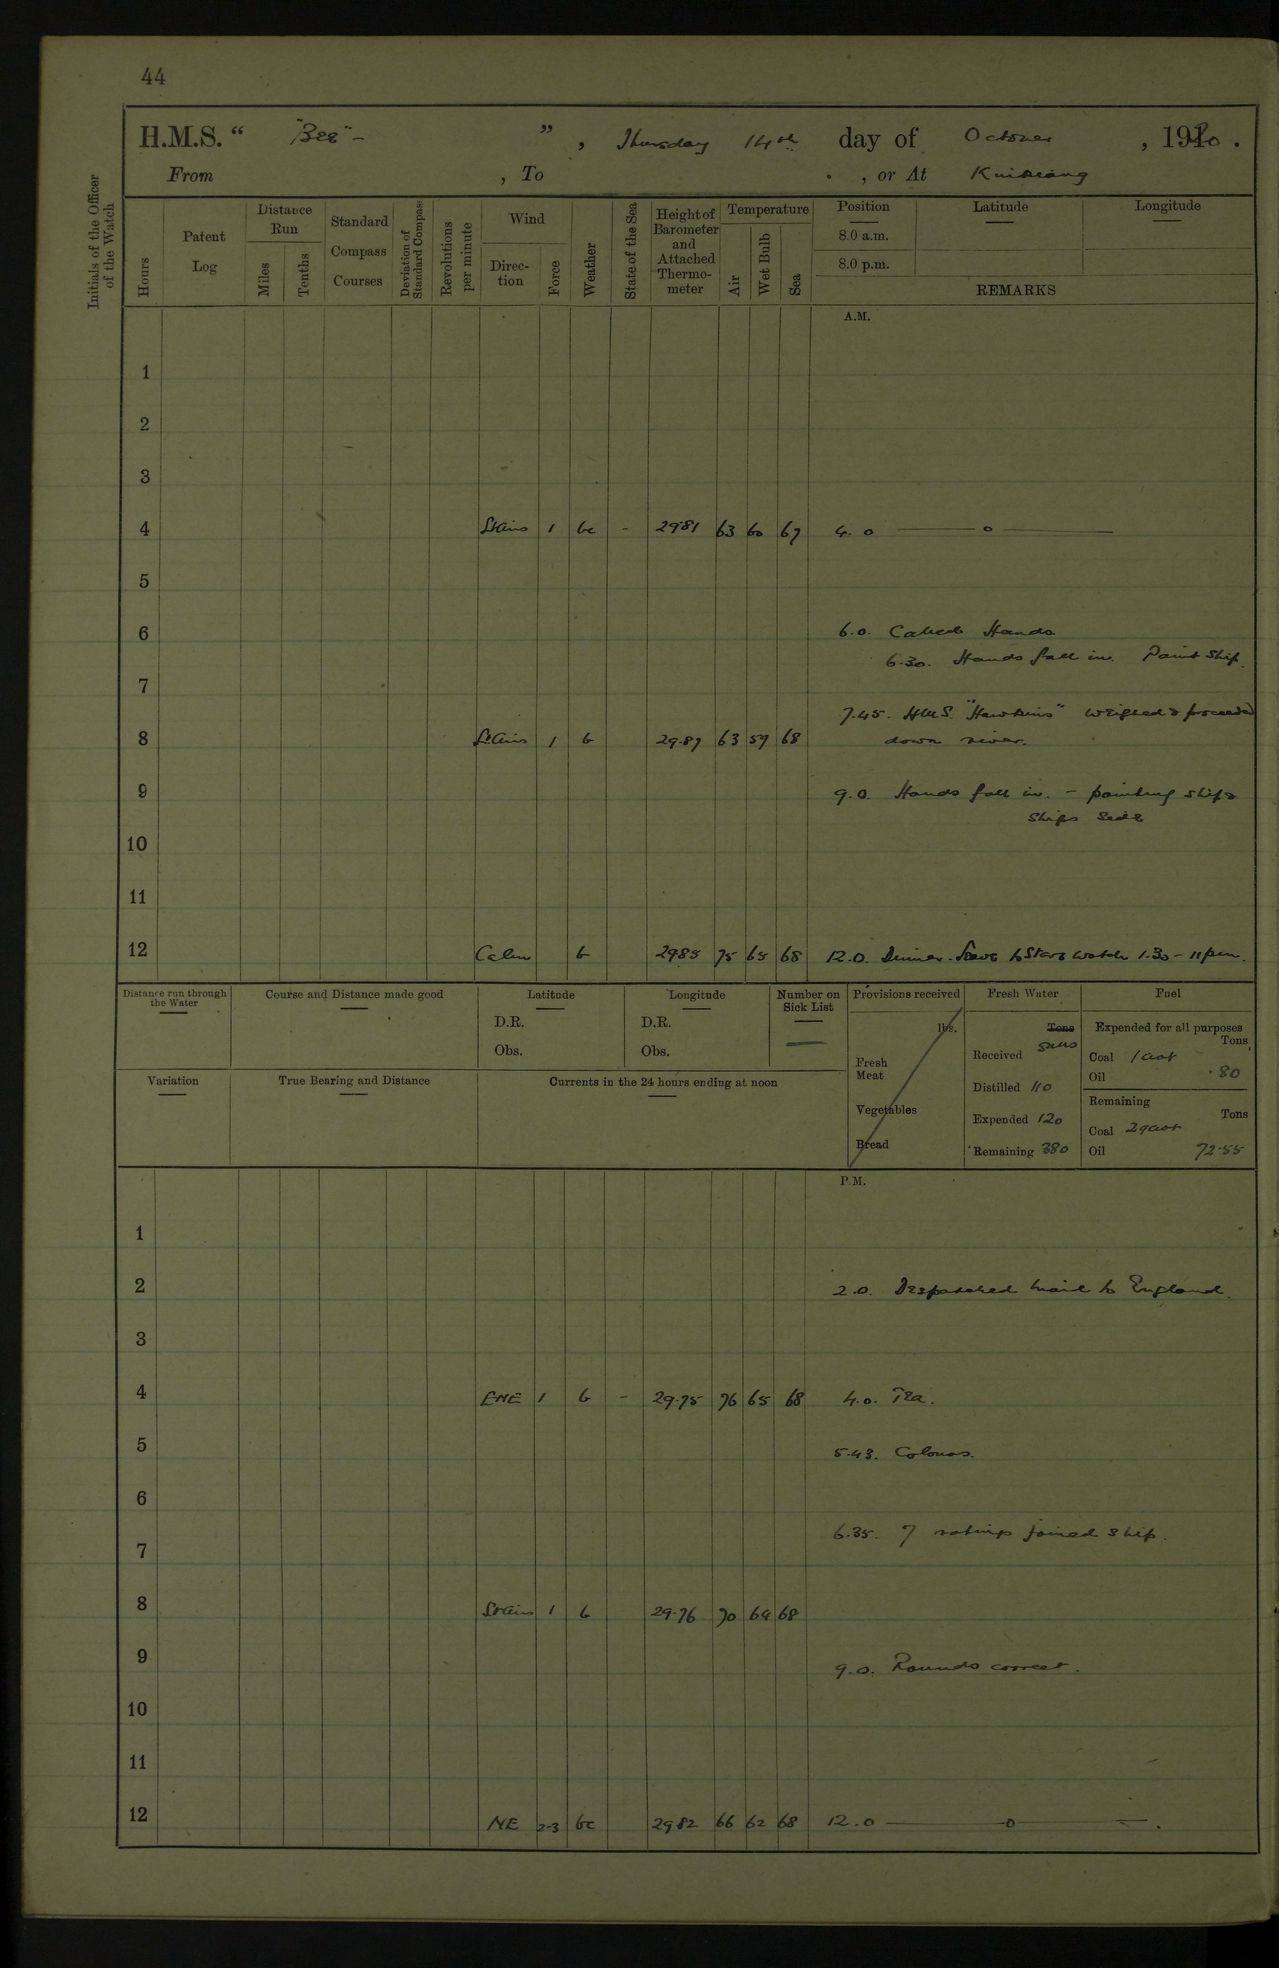 44
H.M.S. “ "Bee" - ”, Thursday 14th day of October, 1920.
From , To , or At Kiukiang
Initials of the Officer of the Watch
Hours
Patent Log
Distance Run
Miles
Tenths
Standard Compass Courses
Deviation of Standard Compass
Revolutions per minute
Wind
Direc-tion
Force
Weather
State of the Sea
Height of Barometer and Attached Thermo-meter
Temperature
Air
Wet Bulb
Sea
Position
8.0 a.m.
8.0 p.m.
Latitude
Longitude
REMARKS
A.M.
1
2
3
4 Lt Airs 1 bc - 29.81 63 60 67 4.0 ——o——
5
6 6.0. Called Hands
6.30. Hands fall in. Paint Ship.
7
7.45. H.M.S. "Hawkins" weighed & proceeded
8 Lt. Airs 1 b 29.87 63 59 68 down river.
9 9.0. Hands fall in. - painting ship &
Ships Side
10
11
12 Calm b 29.85 75 65 68 12.0. Dinner. Leave to Starb watch 1.30 - 11 p.m.
Distance run through the Water
Course and Distance made good
Latitude
D.R.
Obs.
Longitude
D.R.
Obs.
Number on Sick List
Provisions received
lbs.
Fresh Meat
Vegetables
Bread
Fresh Water
Tons
galls
Received
Distilled 110
Expended 120
Remaining 380
Fuel
Expended for all purposes
Tons
Coal 1 cwt
Oil .80
Remaining
Tons
Coal 29 cwt
Oil 72.55
Variation
True Bearing and Distance
Currents in the 24 hours ending at noon
P.M.
1
2 2.0. Despatched mail to England.
3
4 ENE 1 b - 29.75 76 65 68 4.0. Tea.
5 5.43. Colours.
6
6.35. 7 ratings joined ship.
7
8 Lt Airs 1 b 29.76 70 64 68
9 9.0. Rounds correct.
10
11
12 NE 2-3 bc 29.82 66 62 68 12.0 ——o——.